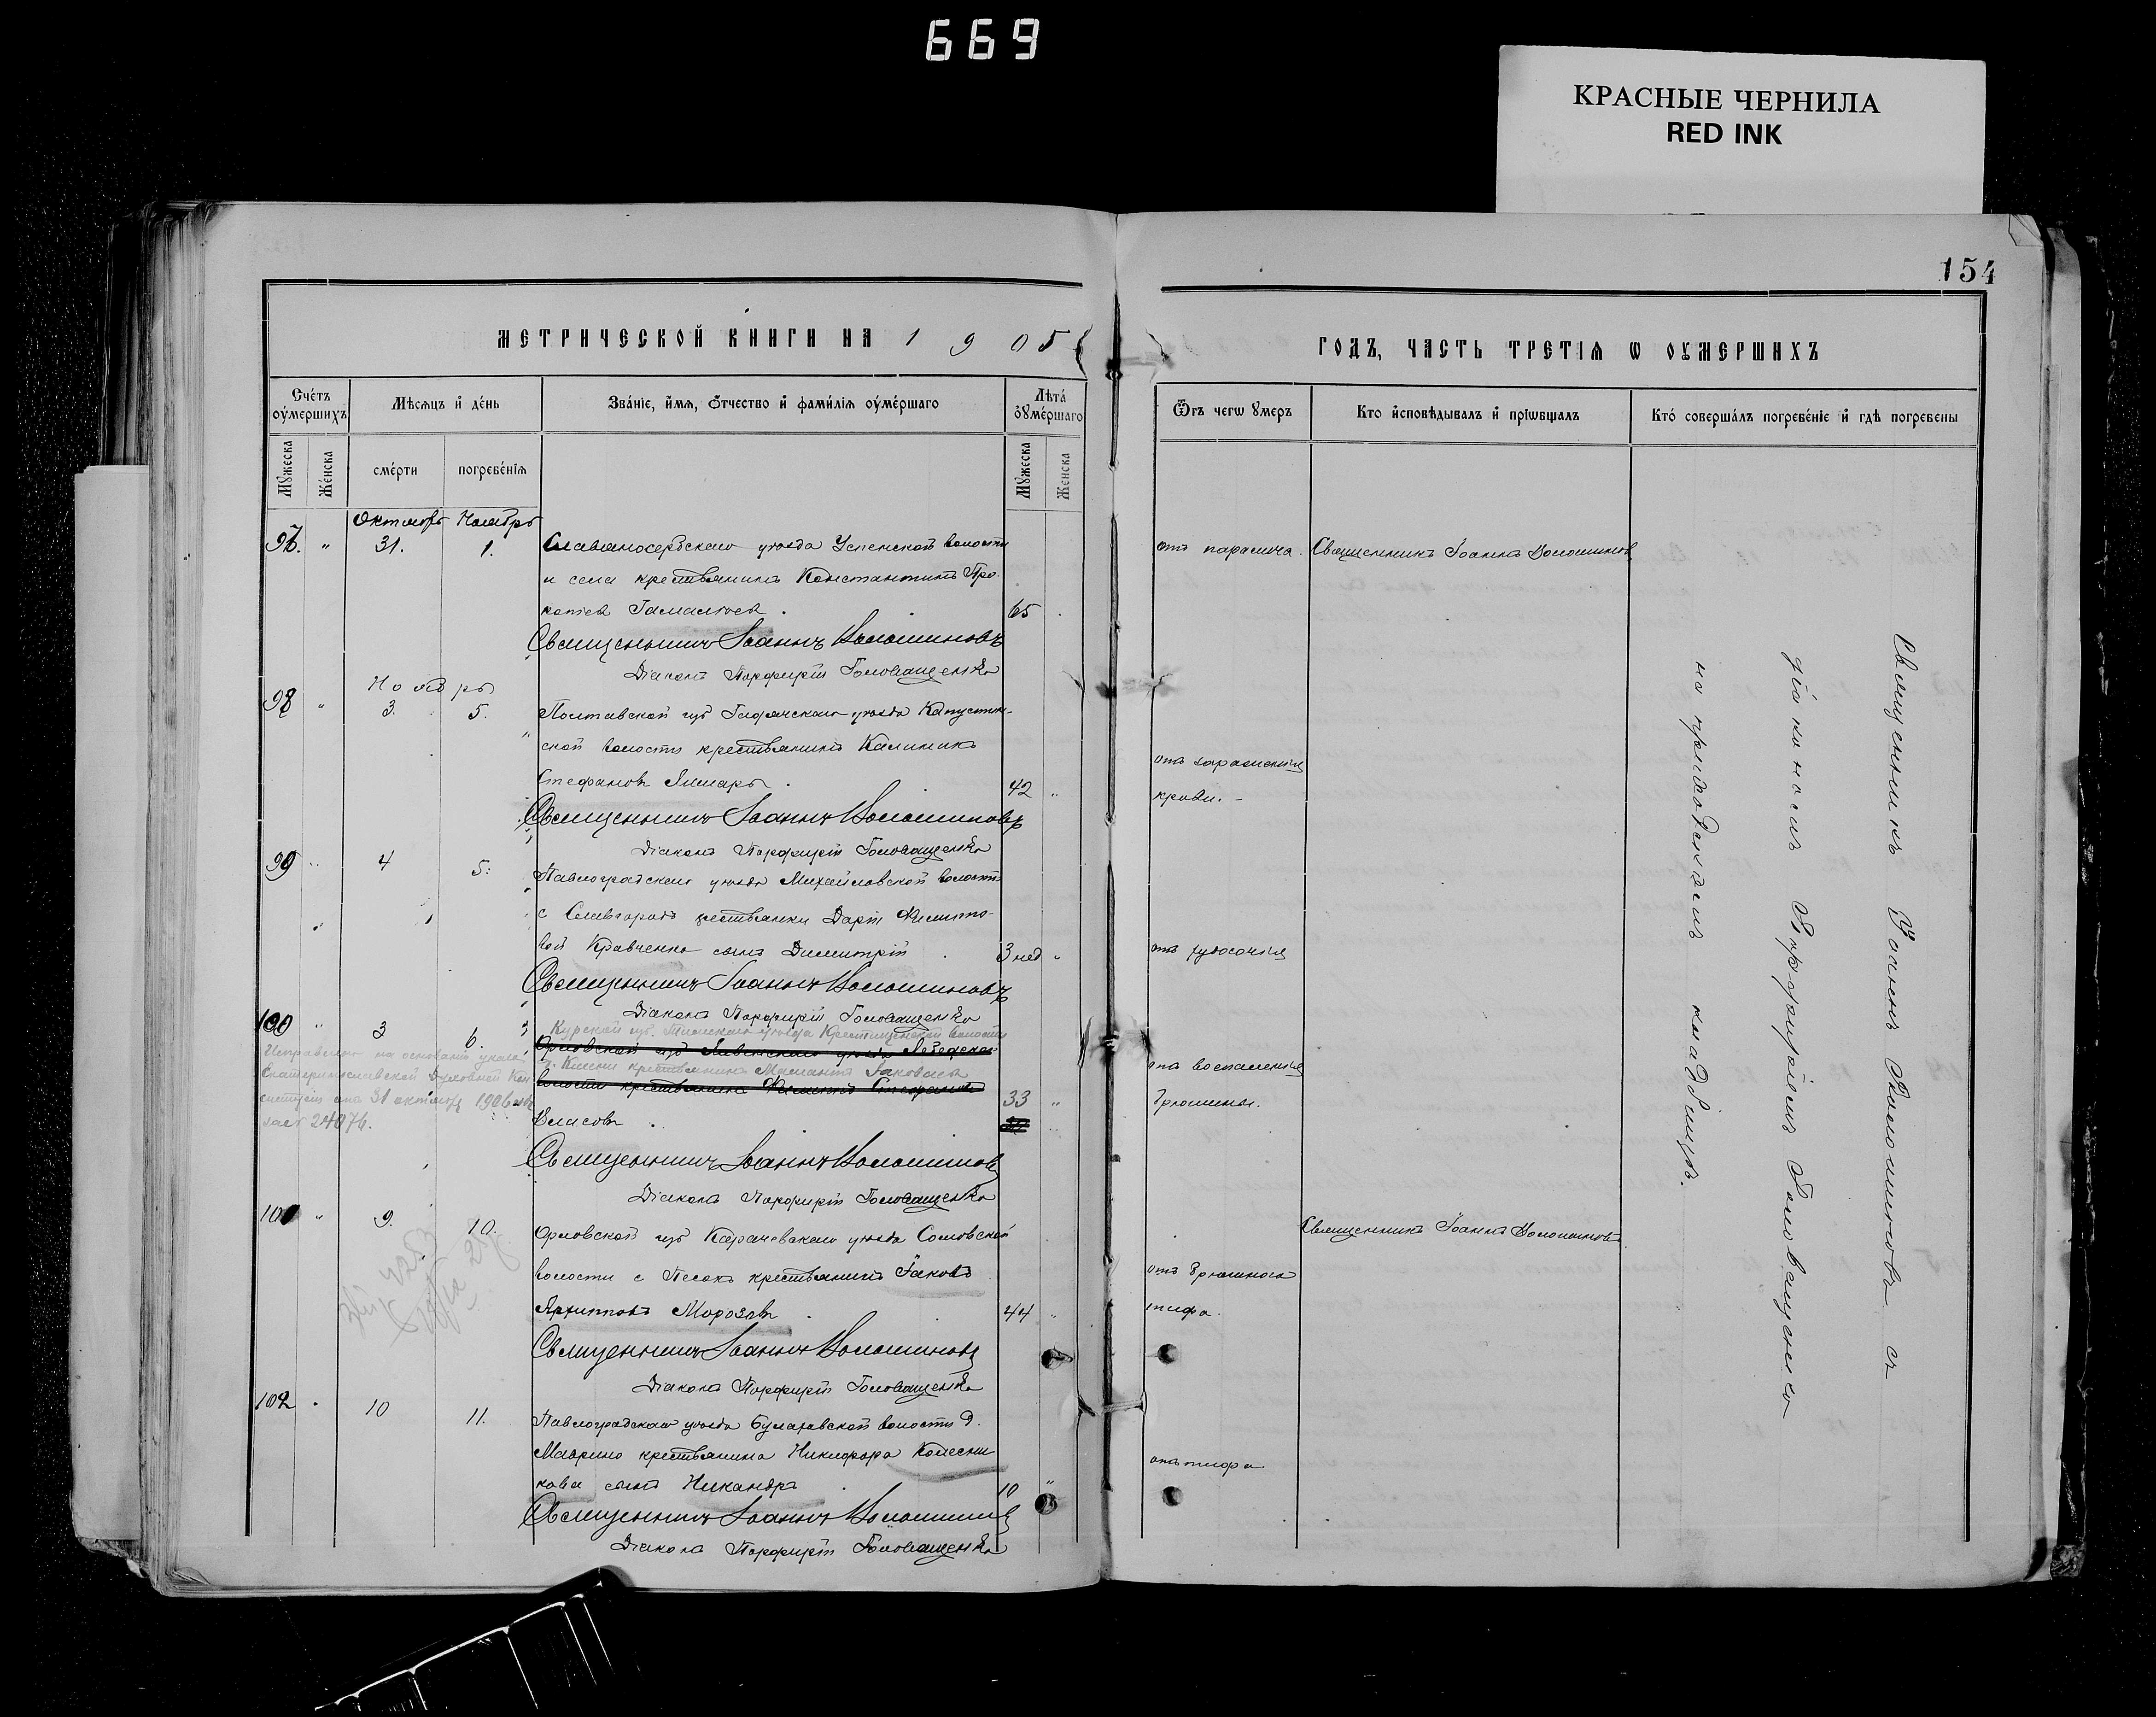 669
КРАСНЫЕ ЧЕРНИЛА
RED INK
154
МЕТРИЧЕСКОЙ КНИГИ НА 1905
ГОДЪ, ЧАСТЬ ТРЕТІѦ Ѡ ОУМЕРШИХЪ
Счетъ оумершихъ
Мѣсѧцъ и день
Званіе, имѧ, отчество и фамиліѧ оумершаго
Лѣта оумершаго
Ѿъ чегѡ умеръ
Кто исповѣдывалъ и пріѡбщалъ
Кто совершалъ погребеніе и гдѣ погребены
Мужеска
Женска
смерти
погребеніѧ
Мужеска
Женска
Октябрь Ноябрь
97. " 31. 1. Славяносербскаго уѣзда Успенской волости
и села крестьянинъ Константинъ Про-
копіевъ Гамалѣевъ. 65
отъ паралича. Священникъ Іоаннъ Волошиновъ
Священникъ Іоаннъ Волошиновъ
Діаконъ Порфирій Головащенко
Ноябрь
98 " 3. 5. Полтавской губ Гадячскаго уѣзда Капустин-
ской волости крестьянинъ Калиникъ
Стефановъ 42 "
отъ зараженія
крови. -
Священникъ Іоаннъ Волошиновъ
Діаконъ Порфирій Головащенко
99 " 4 5. Павлоградскаго уѣзда Михайловской волости
с Славгорода крестьянки Даріи Филиппо-
вой Кравченко сынъ Димитрій. 3 нед "
отъ худосочія
Священникъ Іоаннъ Волошиновъ
Діаконъ Порфирій Головащенко
100 " 3 6. Курской губ. Тимскаго уѣзда Крестищенской волости
Орловской губ Ливенскаго уѣзда
крестьянинъ Іаковлевъ
волости крестьянинъ Стефановъ
Власовъ. 33 "
Исправлено на основаніи указа
Екатеринославской Духовной Кон
систоріи отъ 31 октября 1906 года
за № 24076.
отъ воспаленія
брюшины.
Священникъ Іоаннъ Волошиновъ
Діаконъ Порфирій Головащенко
101 " 9. 10. Орловской губ Карачевскаго уѣзда Сомовской
волости с Песокъ крестьянинъ Іаковъ
Архиповъ Морозовъ. 44 "
Священникъ Іоаннъ Волошиновъ
отъ брюшного
тифа.
Священникъ Іоаннъ Волошиновъ
Діаконъ Порфирій Головащенко
102 " 10 11. Павлоградскаго уѣзда Булаховской волости д.
Маврино крестьянина Никифора Колесни-
кова сынъ Никандръ. 10 "
отъ тифа.
Священникъ Іоаннъ Волошиновъ
Діаконъ Порфирій Головащенко
Священникъ Іоаннъ Волошиновъ съ
діакономъ Порфиріемъ Головащенко
на приходскомъ кладбищѣ.